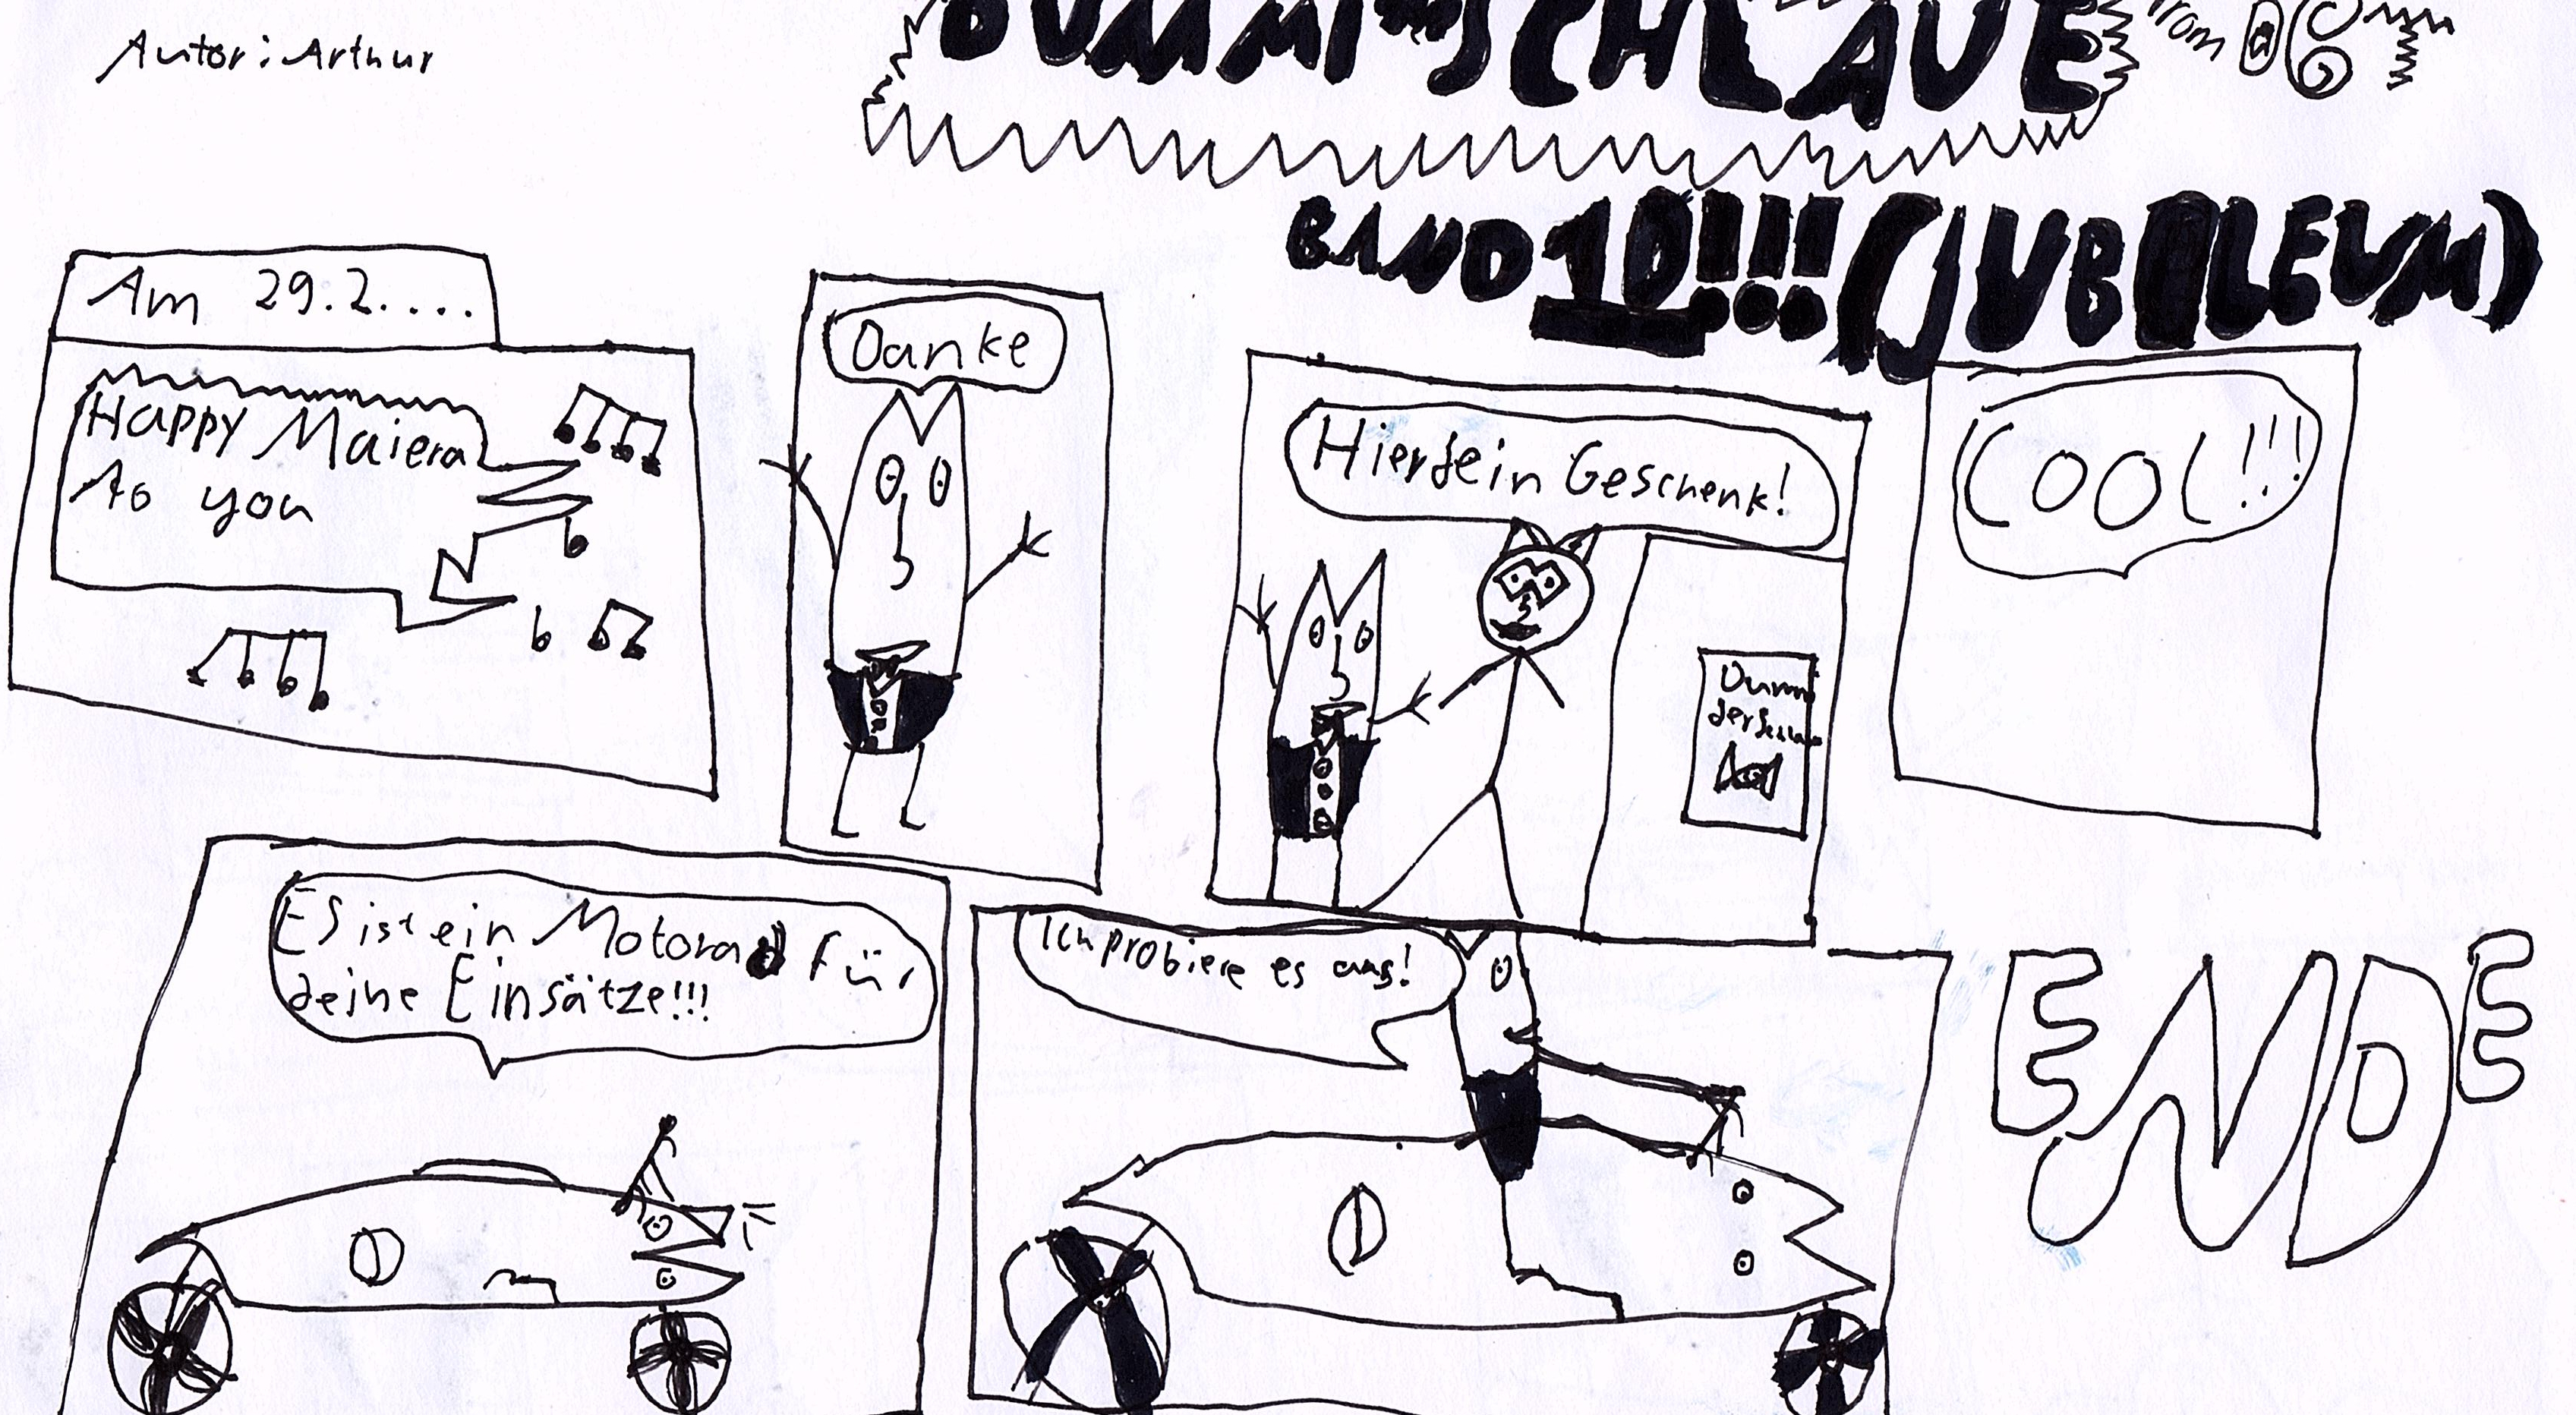 Autor: Arthur
DUMMI der SCHLAUE
from
BAND 10!!! (JUBILEUM)
Am 29.2....
Happy Maiera
to you
Danke
Hier dein Geschenk!
Dummi
der
COOL!!!
ES ist ein Motorad für
deine Einsätze!!!
Ich probiere es aus!
ENDE